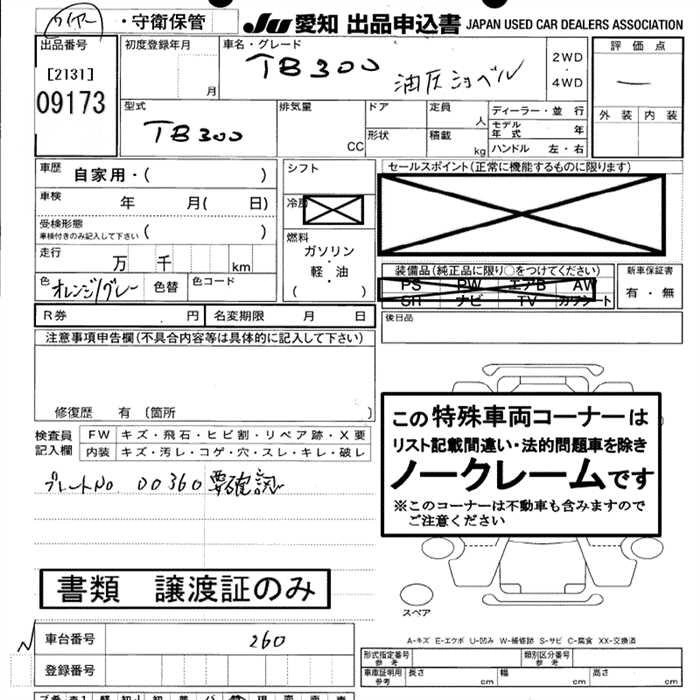 ・守衛保管
JU 愛知 出品申込書 JAPAN USED CAR DEALERS ASSOCIATION
出品番号
[2131]
09173
初度登録年月
月
車名・グレード
TB300 油圧ショベル
2WD
・
4WD
評価点
ー
外装 内装
型式
TB300
排気量
CC
ドア
形状
定員
人
積載
kg
ディーラー・並 行
モデル年式 年
ハンドル 左・右
車歴 自家用・( )
車検 年 月( 日)
受検形態
車検付きのみ記入して下さい ( )
走行 万 千 km
色 オレンジ/グレー 色替 色コード
シフト
冷房
燃料
ガソリン
・
軽・油
( )
セールスポイント(正常に機能するものに限ります)
装備品(純正品に限り○をつけてください)
PS PW エアB AW
SR ナビ TV カワシート
新車保証書
有・無
R券 円 名変期限 月 日
後日品
注意事項申告欄(不具合内容等は具体的に記入して下さい)
修復歴 有〔箇所 〕
検査員記入欄
FW キズ・飛石・ヒビ割・リペア跡・X要
内装 キズ・汚レ・コゲ・穴・スレ・キレ・破レ
プレートNo. 00360 要確認
この特殊車両コーナーは
リスト記載間違い・法的問題車を除き
ノークレームです
※このコーナーは不動車も含みますので
ご注意ください
書類 譲渡証のみ
スペア
A-キズ E-エクボ U-凹み W-補修跡 S-サビ C-腐食 XX-交換済
車台番号 260
登録番号
形式指定番号
参考
類別区分番号
参考
車庫証明用
参考
長さ cm
幅 cm
高さ cm